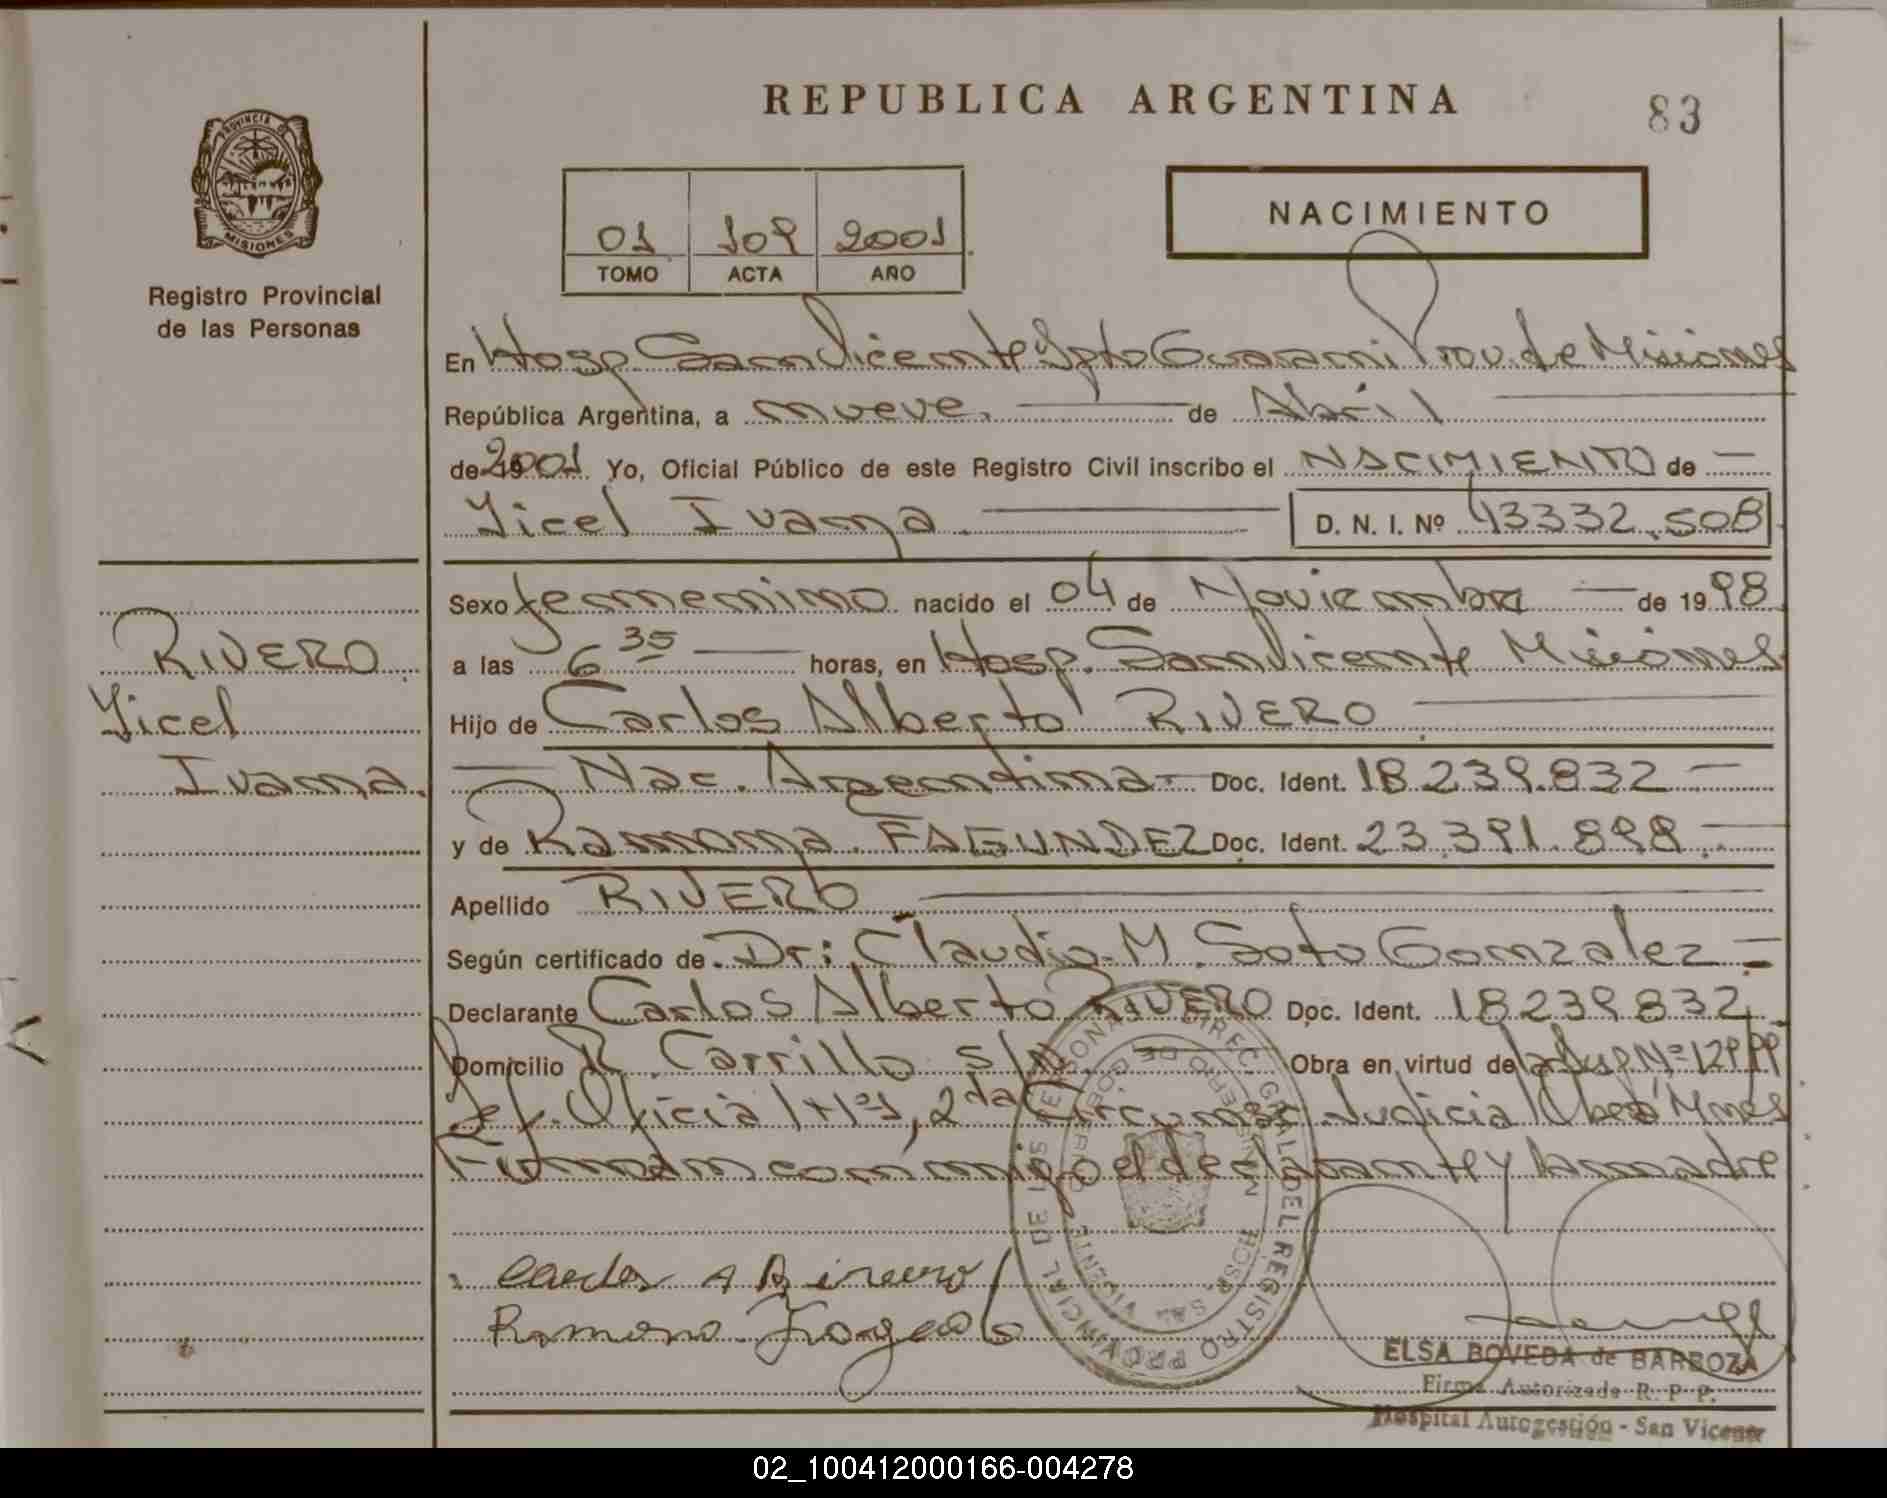 REPUBLICA ARGENTINA
83
PROVINCIA DE
MISIONES
Registro Provincial
de las Personas
01 109 2001
TOMO ACTA AÑO
NACIMIENTO
En Hosp. San Vicente Dpto Guarani Prov. de Misiones
República Argentina, a nueve. de Abril
de 2001 Yo, Oficial Público de este Registro Civil inscribo el NACIMIENTO de
Yicel Ivana D. N. I. Nº 43332.508
Sexo femenino nacido el 04 de Noviembre de 1998
a las 6 35 horas, en Hosp. San Vicente Misiones
Hijo de Carlos Alberto RIVERO
Nac. Argentina Doc. Ident. 18.239.832
y de Ramona FAGUNDEZ Doc. Ident. 23.391.898
Apellido RIVERO
Según certificado de Dr: Claudio M. Soto Gonzalez
Declarante Carlos Alberto RIVERO Doc. Ident. 18239832
Domicilio R. Carrillo s/n Obra en virtud de la Nº 129/99
Def. Oficial Nº 1, 2da Circunsc. Judicial Oberá Mnes
Firman conmigo el declarante y la madre
RIVERO
Yicel
Ivana
Carlos A Rivero
Ramona
DIREC. GRAL. DEL REGISTRO PROVINCIAL DE LAS PERSONAS
MINISTERIO DE GOBIERNO
HOSP. SAN VICENTE
ELSA BOVEDA de BARBOZA
Firma Autorizada R. P. P.
Hospital Autogestión - San Vicente
02_100412000166-004278